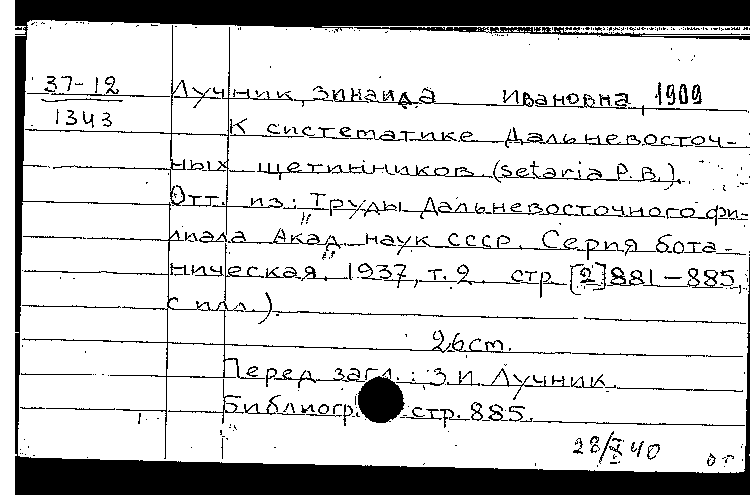 37-12
1343
Лучник, Зинаида Ивановна, 1909
К систематике Дальневосточ-
ных щетинников (setaria P.B.).
Отт. из: "Труды Дальневосточного фи-
лиала Акад. наук СССР. Серия бота-
ническая". 1937, т. 2. стр. [2] 881-885,
с илл.)
26 ст.
Перед загл.: З.И. Лучник.
Библиогр. стр. 885.
28/X 40